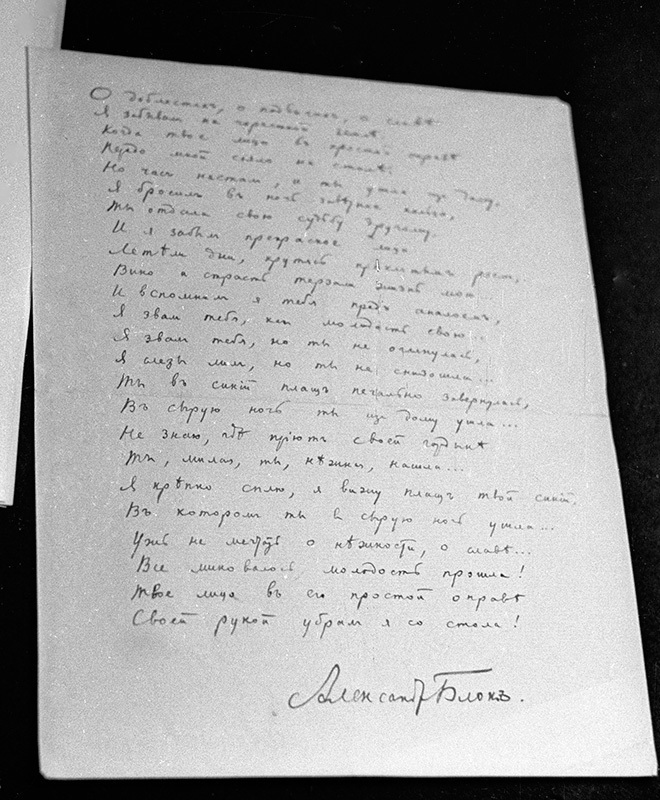 О доблестяхъ, о подвигахъ, о славѣ
Я забывалъ на горестной землѣ,
Когда твое лицо въ простой оправѣ
Передо мной сіяло на столѣ.
Но часъ насталъ, и ты ушла изъ дому.
Я бросилъ въ ночь завѣтное кольцо,
Ты отдала свою судьбу другому,
И я забылъ прекрасное лицо.
Летѣли дни, крутясь проклятымъ роемъ,
Вино и страсть терзали жизнь мою..
И вспомнилъ я тебя предъ аналоемъ,
Я звалъ тебя, какъ молодость свою..
Я звалъ тебя, но ты не оглянулась,
Я слезы лилъ, но ты не снизошла...
Ты въ синій плащъ печально завернулась,
Въ сырую ночь ты изъ дому ушла...
Не знаю, гдѣ пріютъ своей гордынѣ
Ты, милая, ты, нѣжная, нашла...
Я крѣпко сплю, я вижу плащъ твой синій,
Въ которомъ ты в сырую ночь ушла...
Ужъ не мечтать о нѣжности, о славѣ...
Все миновалось, молодость прошла!
Твое лицо въ его простой оправѣ
Своей рукой убралъ я со стола!
Александръ Блокъ.